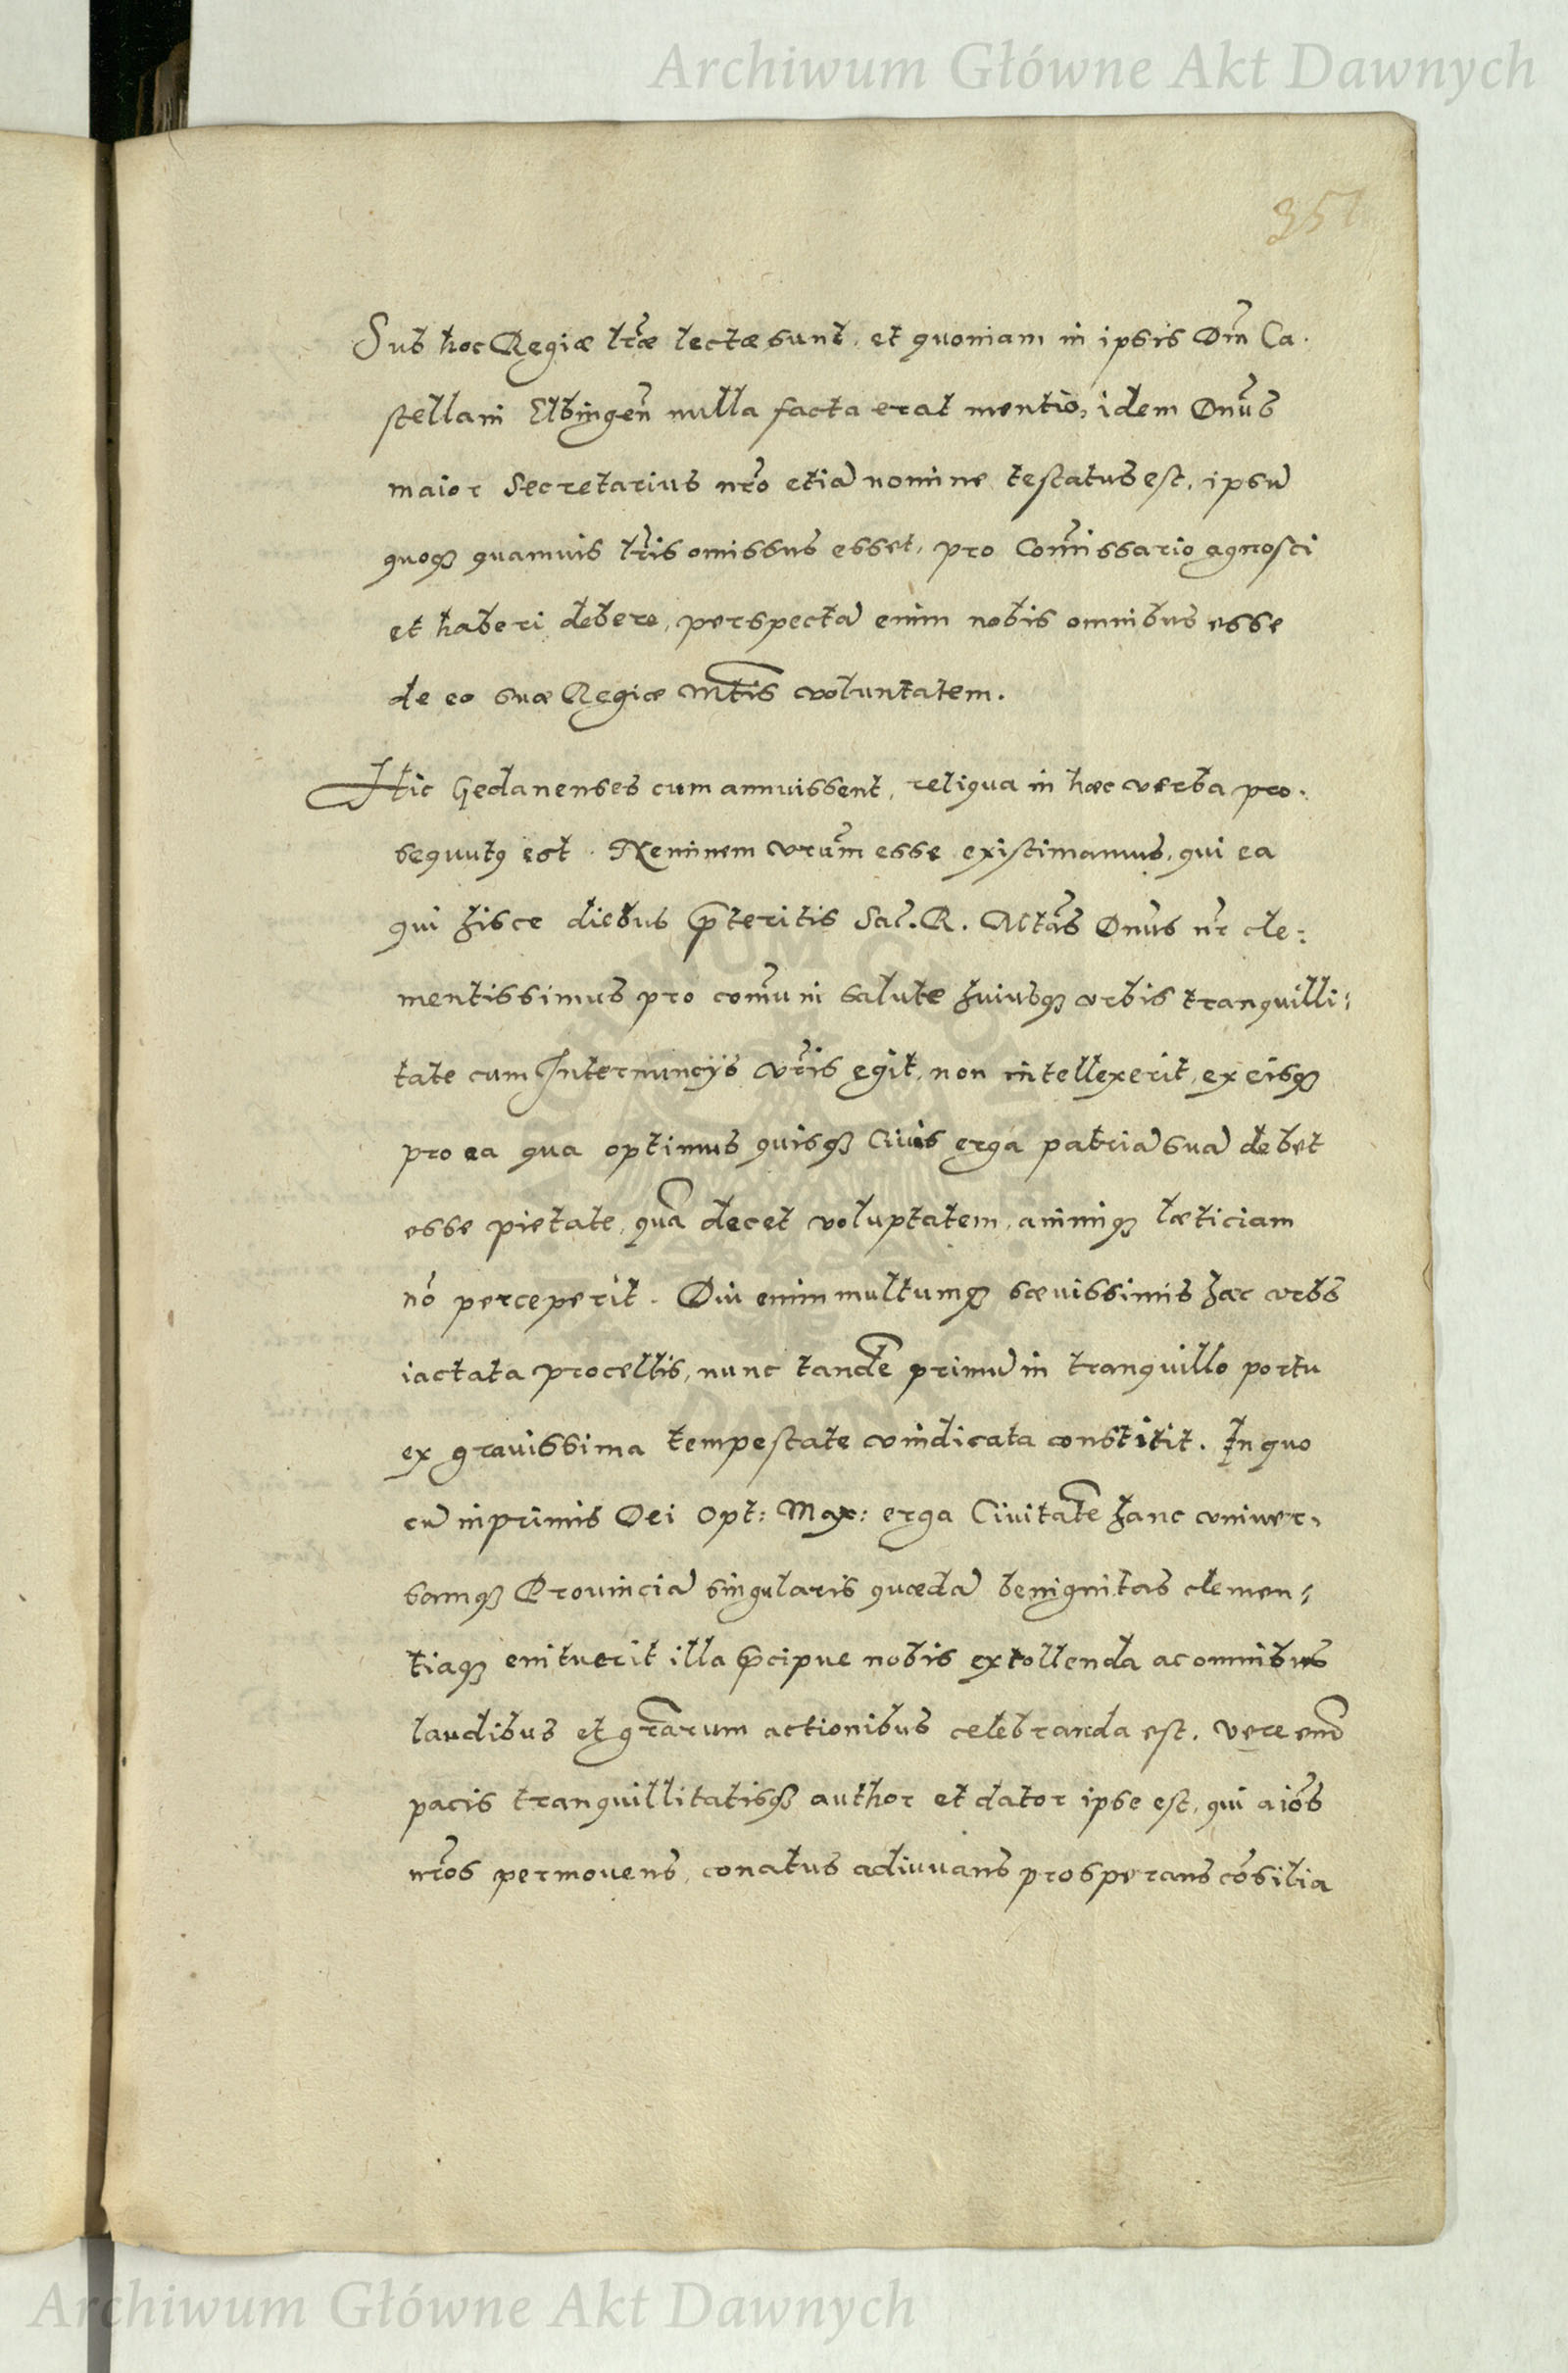 Archiwum Główne Akt Dawnych
351
Sub hoc Regiæ l̃ræ lectæ sunt, et quoniam in ipsis Dn̄i Ca-
stellani Elbingeñ nulla facta erat mentio, idem Dnūs
maior Secretarius nr̃o etiā nomine testatus est, ipsū
quoqꝫ quamuis lr̃is omissus esset, pro Com̄issario agnosci
et haberi debere, perspectā enim nobis omnibus esse
de eo suæ Regiæ Mt̃is voluntatem.
Hic Gedanenses cum annuissent, reliqua in hæc verba pro-
sequutꝯ est. Neminem vrūm esse existimamus, qui ea
qui hisce diebus p̄teritis Sac̃. R. Mtãs Dnūs nr̃ cle:
mentissimus pro com̄uni salute huiusqꝫ vrbis tranquilli:
tate cum Internuncijs vr̃is egit, non intellexerit, ex eisqꝫ
pro ea qua optimus quisqꝫ Ciuis erga patriā suā debet
esse pietate, quā decet voluptatem, animiqꝫ læticiam
nō perceperit. Diu enim multumqꝫ sæuissimis hæc vrbs
iactata procellis, nunc tandē primū in tranquillo portu
ex grauissima tempestate vindicata constitit. In quo
cū inprimis Dei Opt: Max: erga Ciuitatē hanc vniuer-
samqꝫ Prouinciā singularis quædā benignitas clemen:
tiaqꝫ enituerit illa p̄cipue nobis extollenda ac omnibus
laudibus et gr̃arum actionibus celebranda est. Vere enī
pacis tranquillitatisqꝫ author et dator ipse est, qui aiōs
nr̃os permouens, conatus adiuuans prosperans cōsilia
Archiwum Główne Akt Dawnych